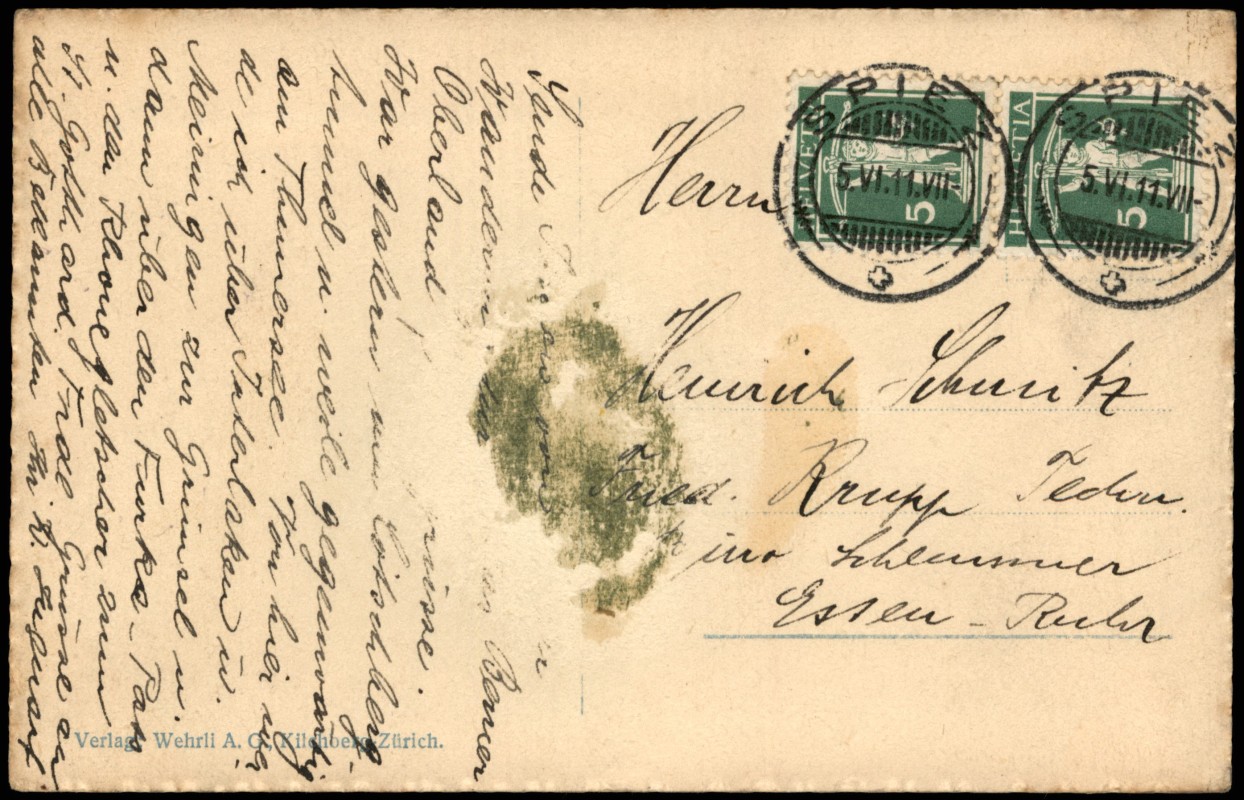 Sende Ihnen von
Wanderung im Berner
Oberland grüsse.
War gestern am Lötschberg-
tunnel u. weile gegenwärtig
am Thunersee. Von hier wer-
de ich über Interlaken u.
Meiringen zur Grimsel u.
dann über den Furka-Pass
u. den Rhonegletscher zum
St. Gotthard. Frdl. Grüsse an
alle Bekannten Ihr
Herrn
Heinrich Schmitz
Fried. Krupp Techn.
Essen-Ruhr
SPIEZ
5.VI.11.VII-
HELVETIA
5
SPIEZ
5.VI.11.VII-
HELVETIA
5
Verlag Wehrli A. G., Kilchberg-Zürich.